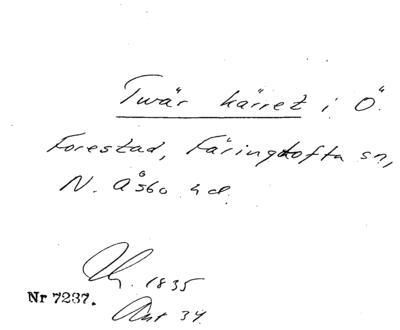 Twär kärret i Ö
Forestad, Färingtofta sn,
N. Åsbo hd.
1835
Nr 7237.
Akt 34